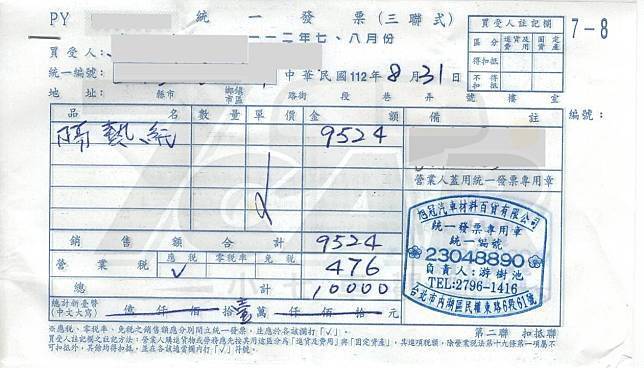 PY 統一發票(三聯式)
買受人註記欄
7-8
一一二年七、八月份
區分 進貨及費用 固定資產
得扣抵
不得扣抵
買受人:
統一編號:
中華民國112年8月31日
地址: 縣市 鄉鎮市區 路街 段 巷 弄 號 樓 室
品名 數量 單價 金額 備註 編號:
隔熱紙 9524
營業人蓋用統一發票專用章
旭冠汽車材料百貨有限公司
統一發票專用章
統一編號
23048890
負責人:游樹池
TEL:2796-1416
台北市內湖區民權東路6段61號
銷售額合計 9524
營業稅 應稅 √ 零稅率 免稅 476
總計 10000
總計新臺幣(中文大寫) 億 仟 佰 拾 壹萬 仟 佰 拾 元
第二聯 扣抵聯
※應稅、零稅率、免稅之銷售額應分別開立統一發票,並應於各該欄打「√」。
買受人註記欄之註記方法:營業人購進貨物或勞務應先按其用途區分為「進貨及費用」與「固定資產」,其進項稅額,除營業稅法第十九條第一項屬不可扣抵外,其餘均得扣抵,並在各該適當欄內打「√」符號。